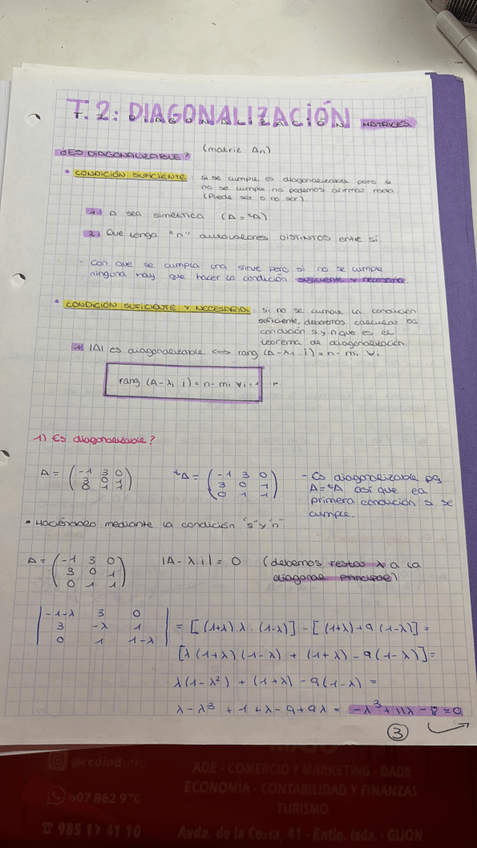 T.2: DIAGONALIZACIÓN MATRICES
¿ES DIAGONALIZABLE? (matriz An)
• CONDICIÓN SUFICIENTE: si se cumple es diagonalizable pero si
no se cumple no podemos afirmar nada
(Puede ser o no ser).
1. A sea simétrica (A = ᵗA)
2. Que tenga "n" autovalores DISTINTOS entre sí.
- Con que se cumpla una sirve pero si no se cumple
ninguna hay que hacer la condición suficiente y necesaria
• CONDICIÓN SUFICIENTE Y NECESARIA: si no se cumple la condición
suficiente, debemos calcular la
condición s. y n que es el
teorema de diagonalización.
1. |A| es diagonalizable ⟺ rang (A-λi·i) = n-mi ∀i
rang (A-λi i) = n-mi ∀i=1
1) Es diagonalizable?
A = (-1 3 0
3 0 1
0 1 1)
ᵗA = (-1 3 0
3 0 1
0 1 1)
- Es diagonalizable pq
A=ᵗA, así que la
primera condición si se
cumple.
• Haciéndolo mediante la condición "s" y "n".
A = (-1 3 0
3 0 1
0 1 1)
|A-λ.i| = 0 (debemos restar λ a la
diagonal principal)
|-1-λ 3 0
3 -λ 1
0 1 1-λ|
= [(1+λ) λ (1-λ)] - [(1+λ)+9(1-λ)] =
[λ(1+λ)(1-λ) + (1+λ) - 9(1-λ)] =
λ(1-λ²) + (1+λ) - 9(1-λ) =
λ-λ³ + 1+λ - 9+9λ = -λ³+11λ-8=0
3
@credind
607 862 970
985 19 41 10
ADE - COMERCIO Y MARKETING - DADE
ECONOMÍA - CONTABILIDAD Y FINANZAS
TURISMO
Avda. de la Costa, 41 - Entlo. Izda. - GIJON